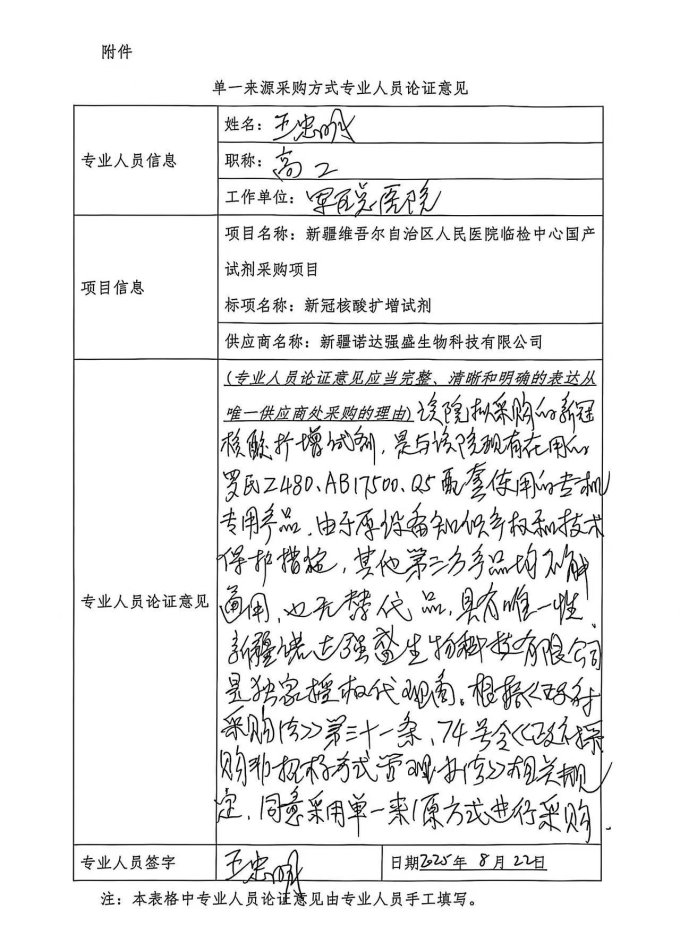 附件
单一来源采购方式专业人员论证意见
专业人员信息
姓名：王忠明
职称：高工
工作单位：军区总医院
项目信息
项目名称：新疆维吾尔自治区人民医院临检中心国产
试剂采购项目
标项名称：新冠核酸扩增试剂
供应商名称：新疆诺达强盛生物科技有限公司
专业人员论证意见
(专业人员论证意见应当完整、清晰和明确的表达从
唯一供应商处采购的理由)该院拟采购的新冠
核酸扩增试剂，是与该院现有在用的
罗氏Z480、ABI7500、Q5配套使用的专机
专用产品，由于原设备知识产权和技术
保护措施，其他第三方产品均不能
通用，也无替代品，具有唯一性，
新疆诺达强盛生物科技有限公司
是独家授权代理商。根据《政府
采购法》第三十一条，74号令《政府采
购非招标方式管理办法》相关规
定，同意采用单一来源方式进行采购.
专业人员签字
王忠明
日期2025年8月22日
注：本表格中专业人员论证意见由专业人员手工填写。